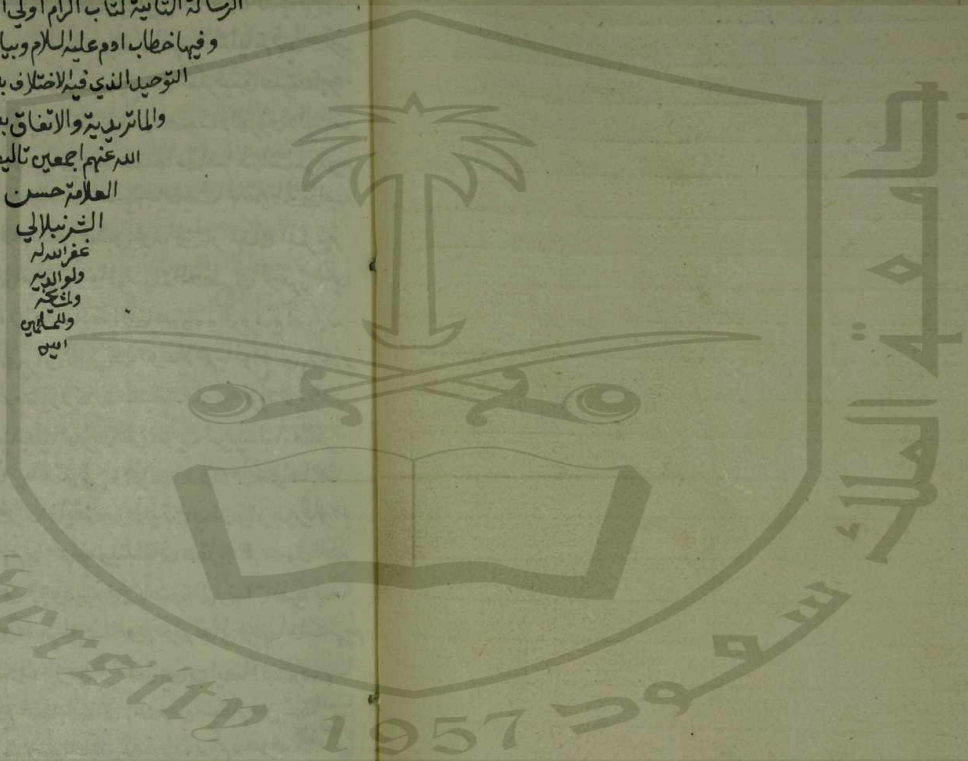 الرسالة الثانية كتاب اكرام اولي ا
وفيها خطاب ادم عليه السلام وبيا
التوحيد الذي فيه الاختلاف بـ
والماتريدية والاتفاق بـ
الله عنهم اجمعين تاليف
العلامة حسن
الشرنبلالي
غفر الله له
ولوالديه
ولمشايخه
وللمسلمين
امين
جامعة الملك سعود
versity 1957